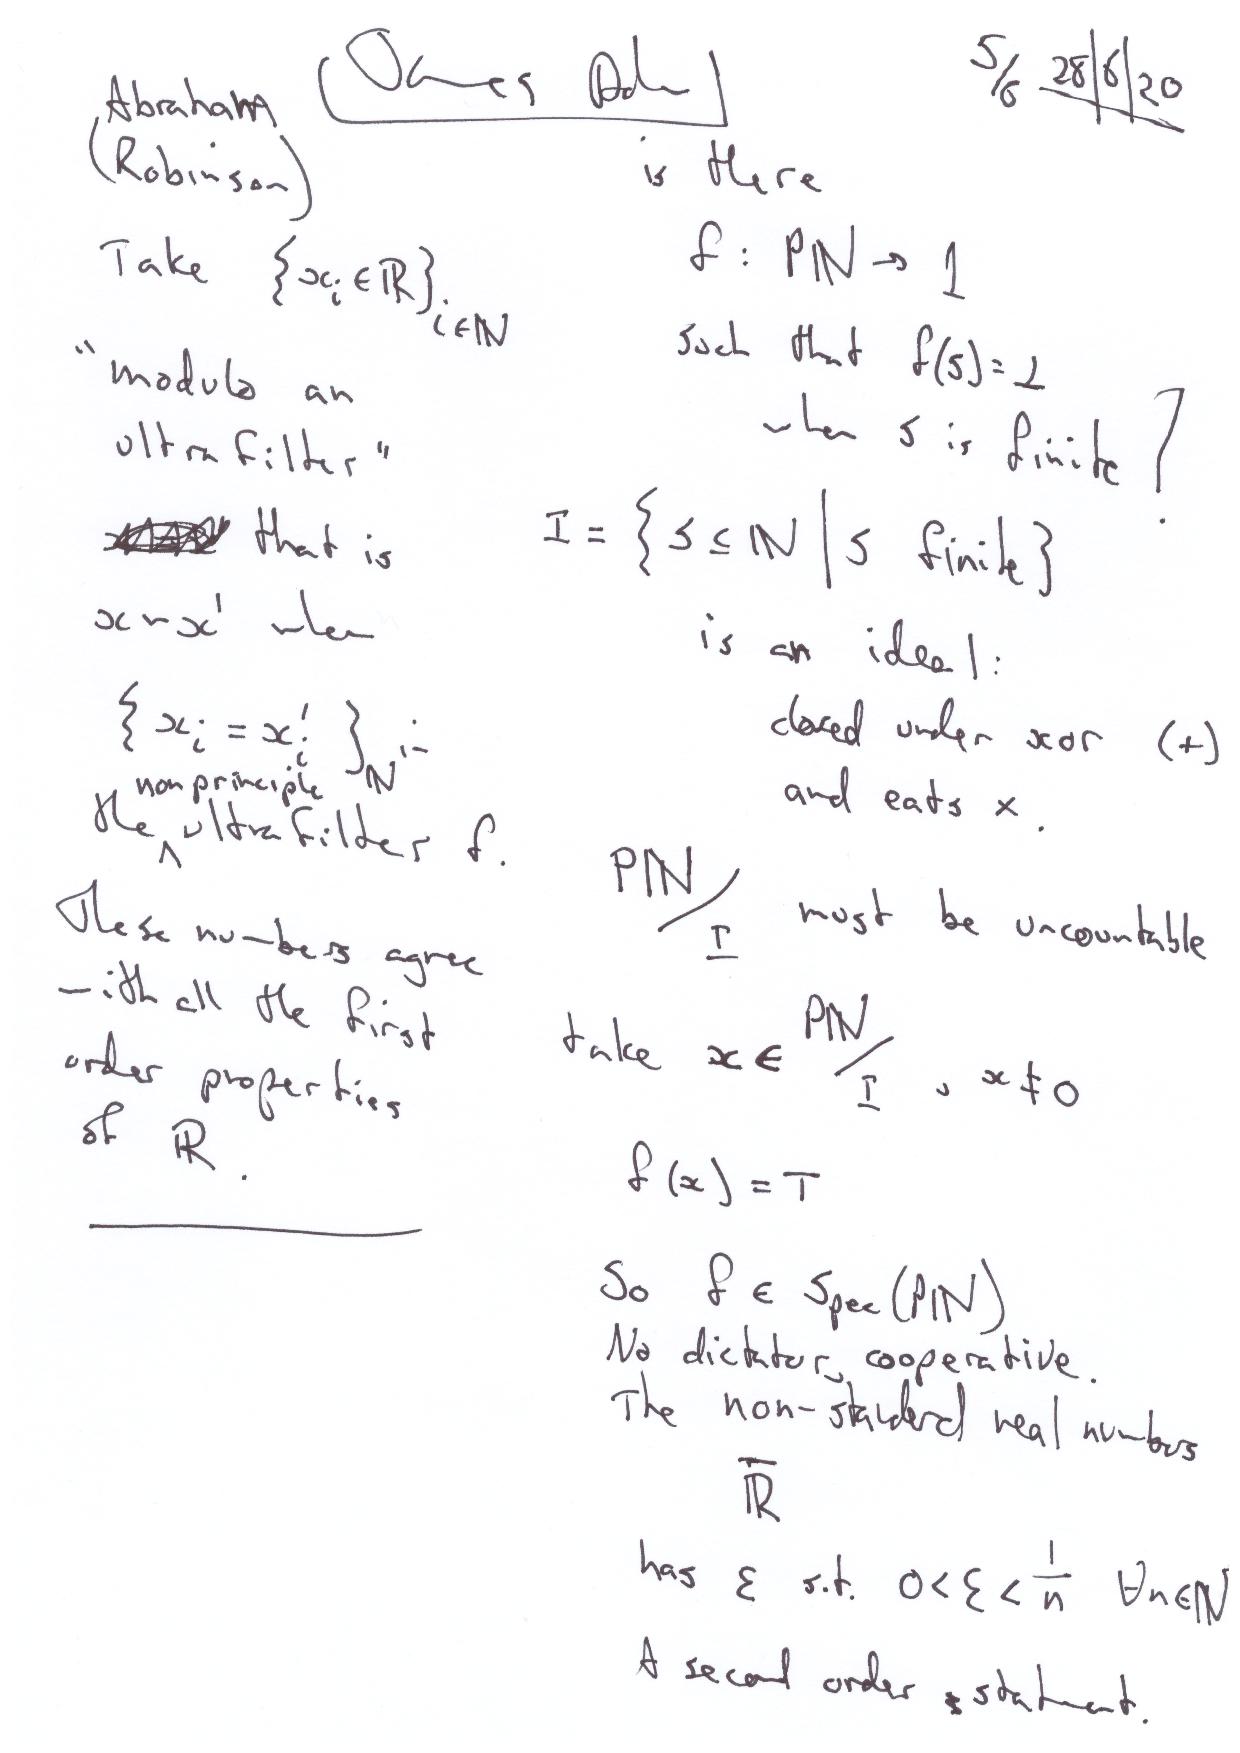 James
5/6 28/6/20
Abraham
(Robinson)
Take {xᵢ ∈ ℝ}ᵢ∈ℕ
"modulo an
ultrafilter"
that is
x ~ x' when
{xᵢ = x'ᵢ}ℕ in
nonprinciple
the ^ ultrafilter f.
These numbers agree
with all the first
order properties
of ℝ.
is there
f : Pℕ → 1
such that f(s) = ⊥
when s is finite ?
I = {s ⊆ ℕ | s finite}
is an ideal:
closed under xor (+)
and eats x.
Pℕ/I must be uncountable
take x ∈ Pℕ/I , x ≠ 0
f(x) = T
So f ∈ Spec(Pℕ)
No dictator, cooperative.
The non-standard real numbers
ℝ̅
has ε s.t. 0 < ε < 1/n ∀n∈ℕ
A second order statement.